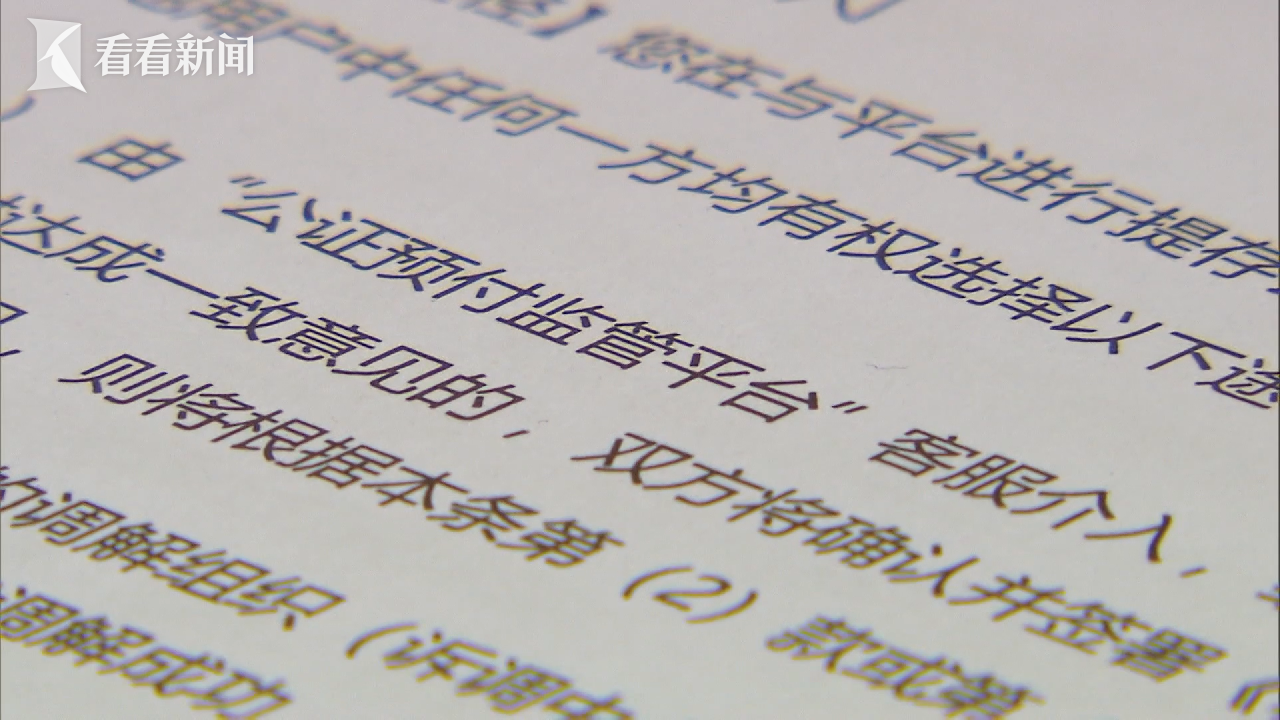 看看新闻
】您在与平台进行提存
用户中任何一方均有权选择以下途
）由“公证预付监管平台”客服介入，
达成一致意见的，双方将确认并签署《
，则将根据本条第（2）款或第
的调解组织（诉调中
调解成功